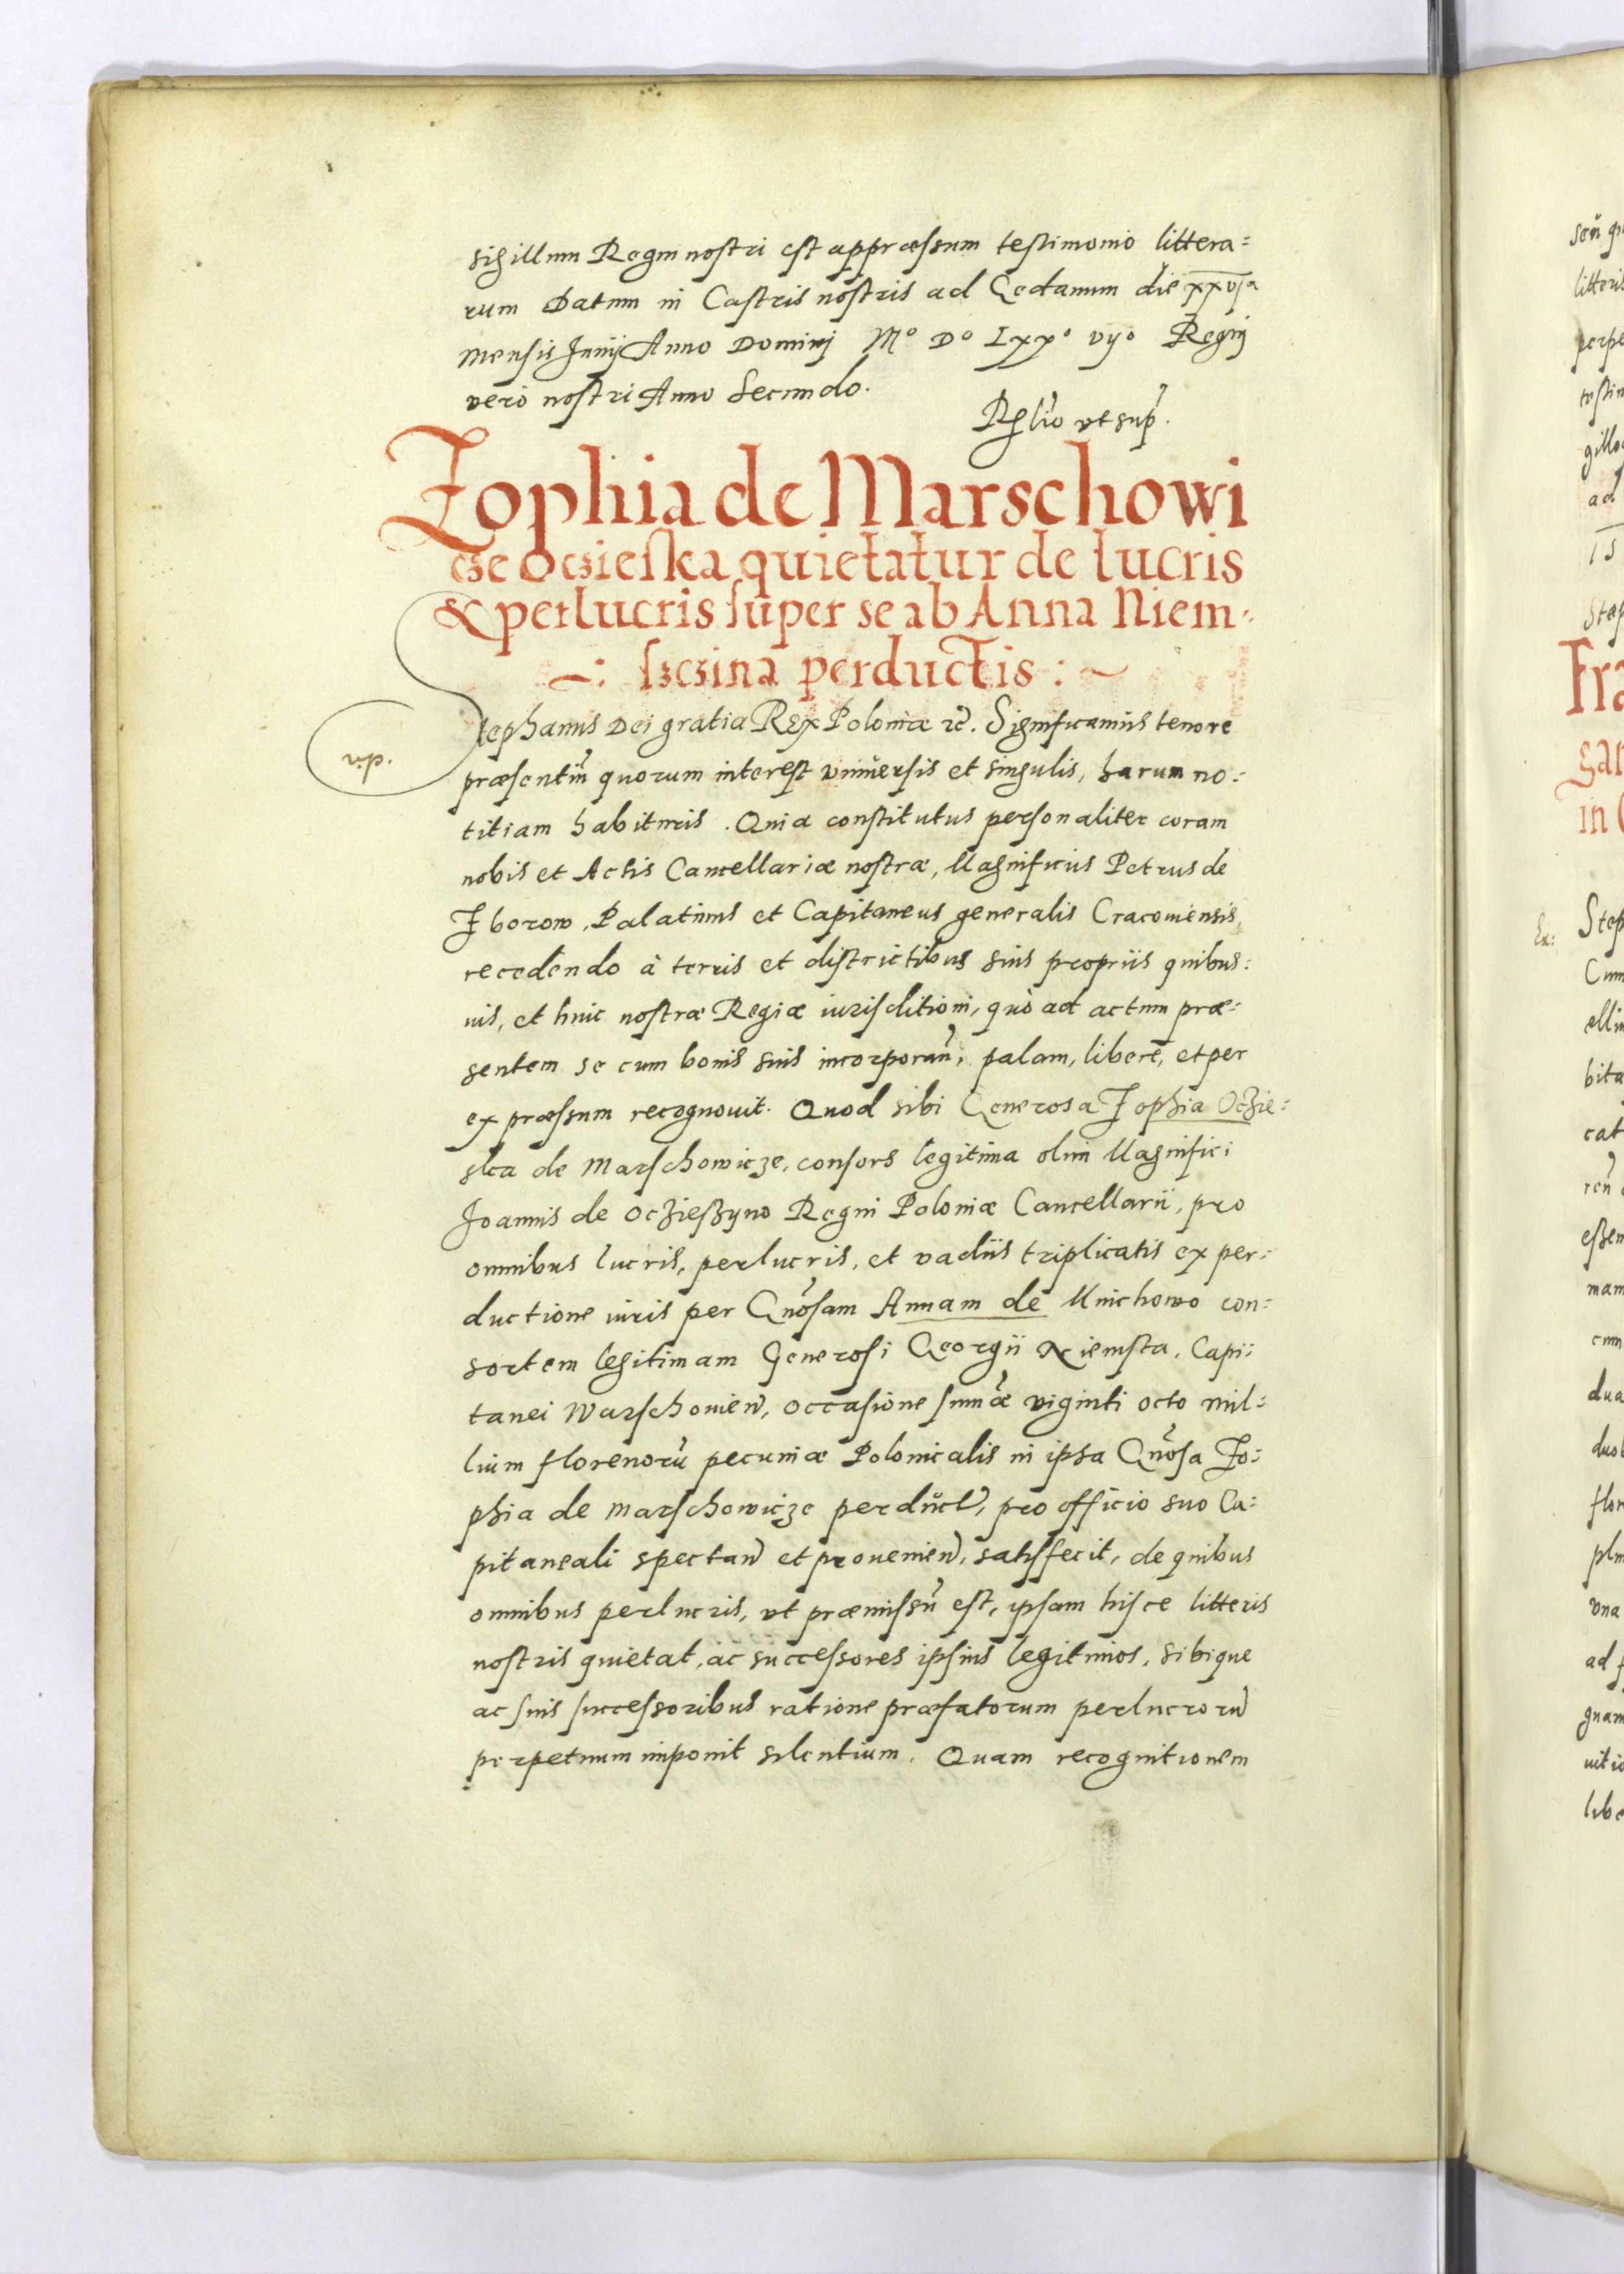 sigillum Regni nostri est appræssum testimonio littera=
rum Datum in Castris nostris ad Gedanum die xxvja
mensis Junij Anno Dominj Mo Do Lxxo vijo Regnj
vero nostri Anno Secundo.
vt sup.
Zophia de Marschowi
cze Oczieska quietatur de lucris
& perlucris super se ab Anna Niem-
sczina perductis
Stephanus Dei gratia Rex Poloniæ rc. Significamus tenore
præsentiũ quorum interest vniuersis et singulis, harum no=
titiam habituris. Quia constitutus personaliter coram
nobis et Actis Cancellariæ nostræ, Magnificus Petrus de
Zborow, Palatinus et Capitaneus generalis Cracouiensis,
recedendo à terris et districtibus suis propriis quibus=
uis, et huic nostræ Regiæ iurisditioni, quò ad actum præ=
sentem se cum bonis suis incorporañ, palam, liberè, et per
expræssum recognouit. Quod sibi Generosa Zophia Oczie=
ska de Marschowicze, consors legitima olim Magnifici
Joannis de Oczieszyno Regni Poloniæ Cancellarii, pro
omnibus lucris, perlucris, et vadiis triplicatis ex per=
ductione iuris per Gñosam Annam de Mnichowo con=
sortem legitimam Generosi Georgii Niemsta, Capi=
tanei Warschouieñ, occasione sum̃æ viginti octo mil=
lium florenorũ pecuniæ Polonicalis in ipsa Gñosa Zo=
phia de Marschowicze perduct, pro officio suo Ca=
pitaneali spectañ et prouenieñ, satisfecit, de quibus
omnibus perlucris, vt præmissũ est, ipsam hisce litteris
nostris quietat, ac successores ipsius legitimos, sibique
ac suis successoribus ratione præfatorum perlucrorũ
perpetuum imponit silentium. Quam recognitionem